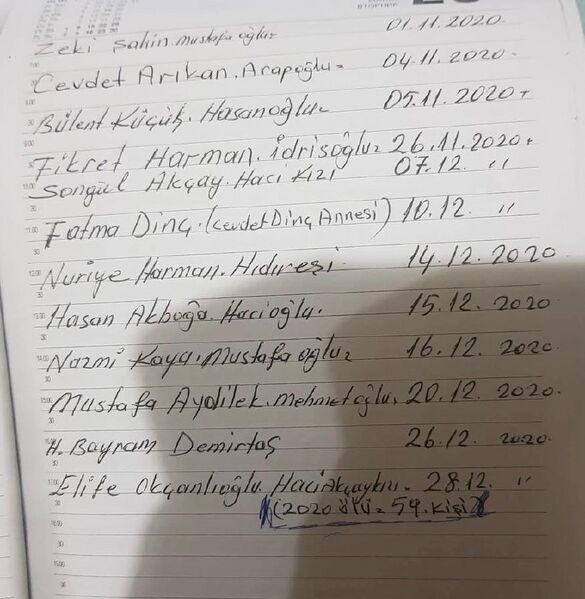 Zeki Şahin. mustafa oğlu. 01.11.2020.
Cevdet Arıkan. Arapoğlu. 04.11.2020.
Bülent Küçük. Hasanoğlu. 05.11.2020.
Fikret Harman. idrisoğlu. 26.11.2020.
Songül Akçay. Hacı Kızı 07.12. "
Fatma Dinç. (Cevdet Dinç Annesi) 10.12. "
Nuriye Harman. Hıdıreşi 14.12.2020.
Hasan Akboğa. Hacıoğlu. 15.12.2020.
Nazmi Kaya. Mustafa oğlu. 16.12.2020.
Mustafa Aydilek. mehmetoğlu. 20.12.2020.
H. Bayram Demirtaş 26.12. 2020.
Elife Okçanlıoğlu. 28.12. "
(2020 ölü = 59. Kişi)